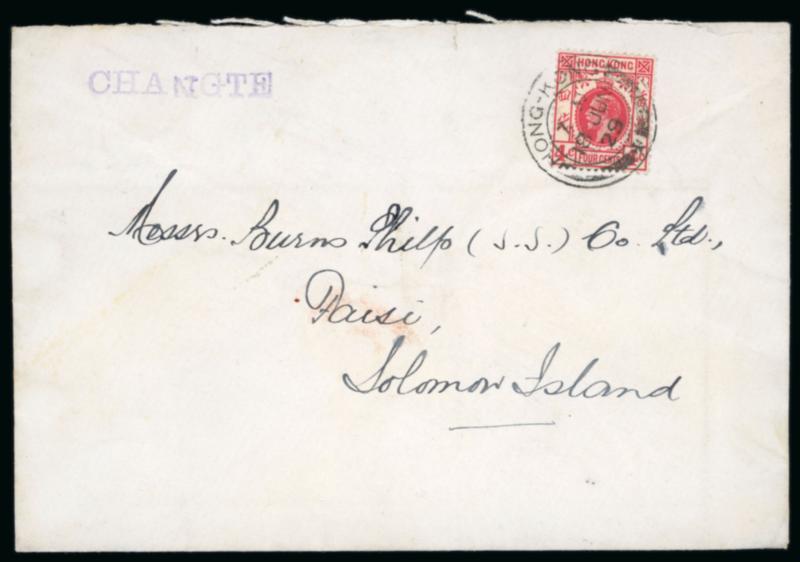 CHANGTE
HONGKONG
FOUR CENTS
HONG-KONG
18 JU
29
Messrs. Burns Philp (S.S.) Co. Ltd.,
Faisi,
Solomon Island